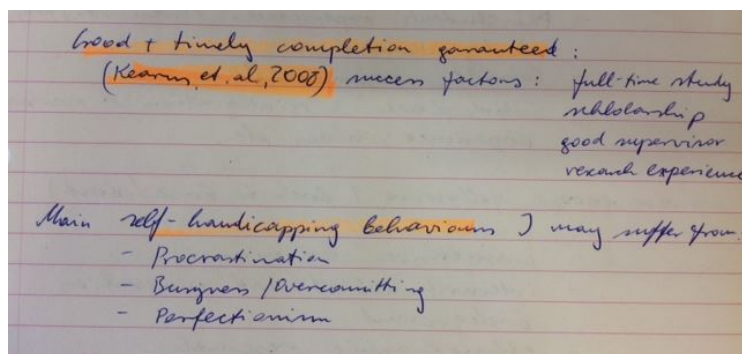 Good + timely completion garanteed :
(Kearns, et. al, 2008) success factors : full-time study
schlolarship
good supervisor
research experience
Main self-handicapping behaviours I may suffer from.
- Procrastination
- Busyness / Overcomitting
- Perfectionism